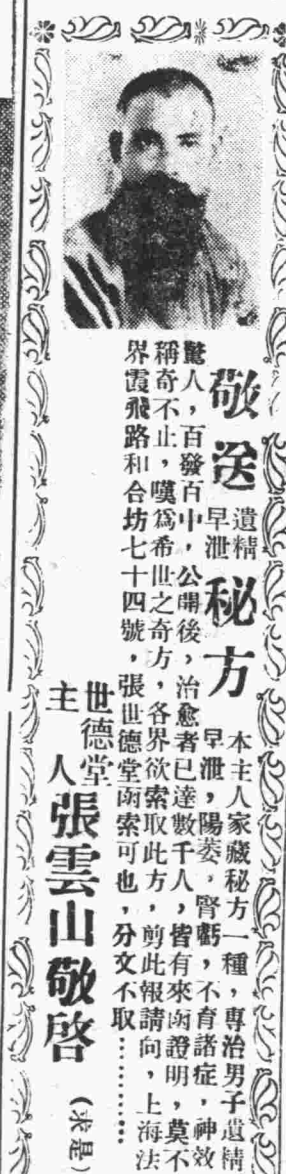 敬送遺精早泄秘方
本主人家藏秘方一種，專治男子遺精
早泄，陽萎，腎虧，不育諸症，神效
驚人，百發百中，公開後，治愈者已達數千人，皆有來函證明，莫不
稱奇不止，嘆爲希世之奇方，各界欲索取此方，剪此報請向，上海法
界霞飛路和合坊七十四號，張世德堂函索可也，分文不取…………
世德堂
主人張雲山敬啓
（求是）